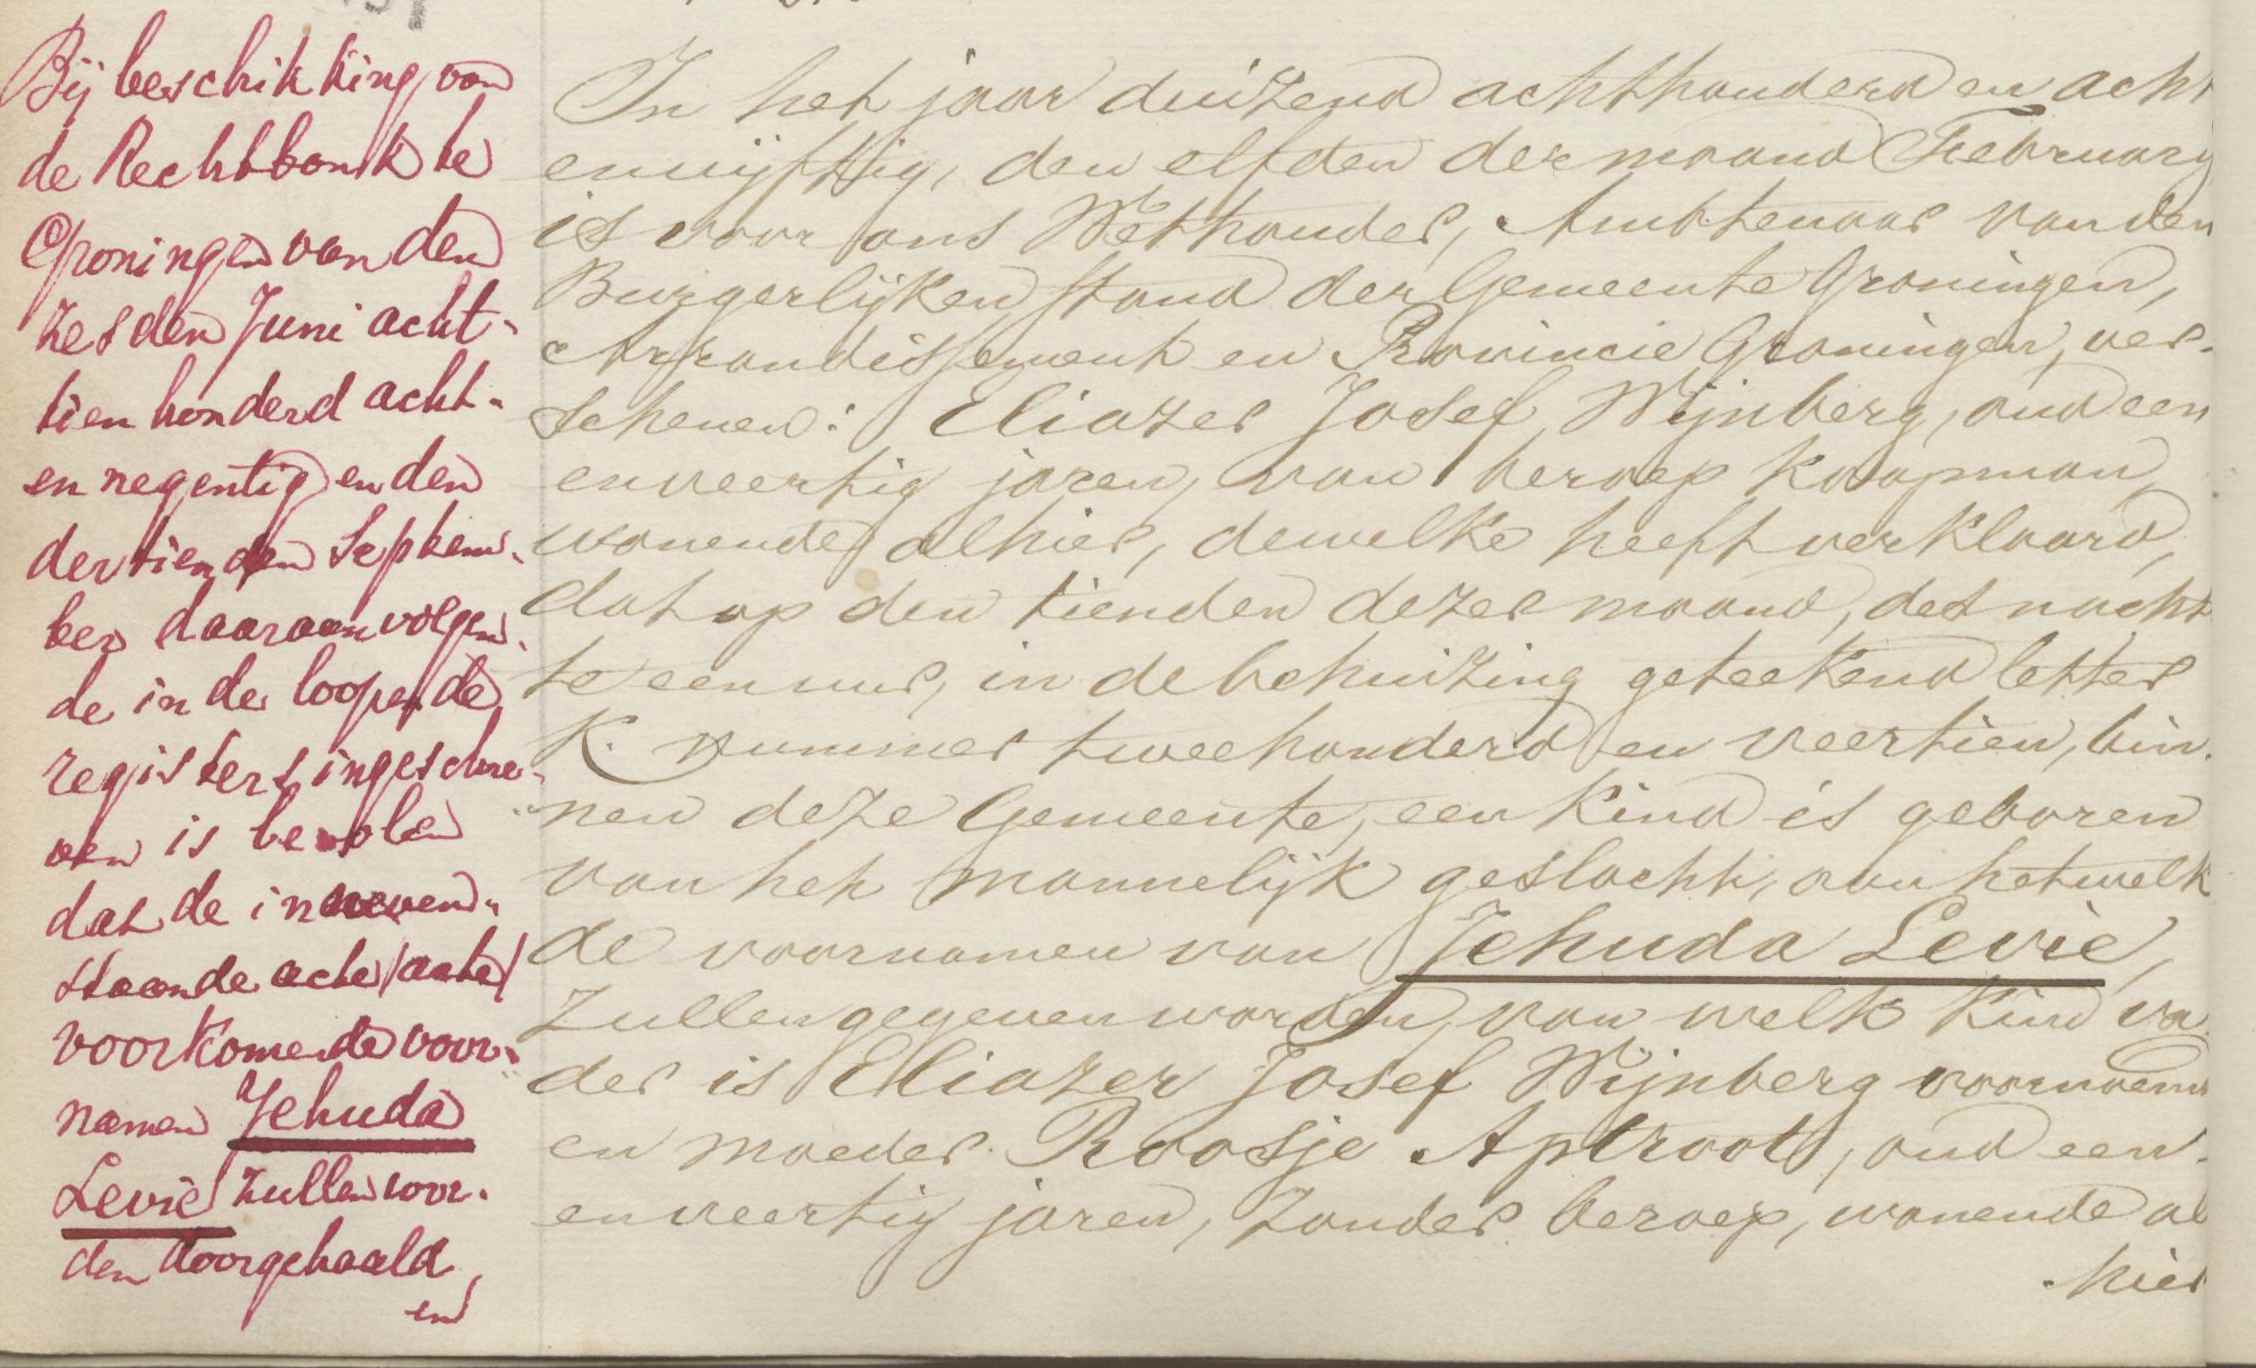 Bij beschikking van
de Rechtbank te
Groningen van den
zesden Juni acht-
tienhonderd acht-
en negentig en den
dertienden Septem-
ber daaraanvolgen-
de in de loopende
registers ingeschre-
ven is bevolen
dat de in nevend-
staande acte /acte/
voorkomende voor-
namen Jehuda
Levie zullen wor-
den doorgehaald,
en
In het jaar duizend achthonderd en acht
envijftig, den elfden der maand February
is voor ons Wethouder, Ambtenaar van den
Burgerlijken Stand der Gemeente Groningen,
Arrondissement en Provincie Groningen, ver-
schenen: Eliazer Josef Wijnberg, oud een
enveertig jaren, van beroep koopman,
wonende alhier, dewelke heeft verklaard,
dat op den tienden dezer maand, des nachts
te een uur, in de behuizing geteekend letter
K. nummer tweehonderd en veertien, bin-
nen deze Gemeente, een kind is geboren
van het mannelijk geslacht, aan hetwelk
de voornamen van Jehuda Levie,
zullen gegeven worden, van welk kind va
der is Eliazer Josef Wijnberg voornoemd
en moeder Roosje Aptroot, oud een-
enveertig jaren, zonder beroep, wonende al
hier